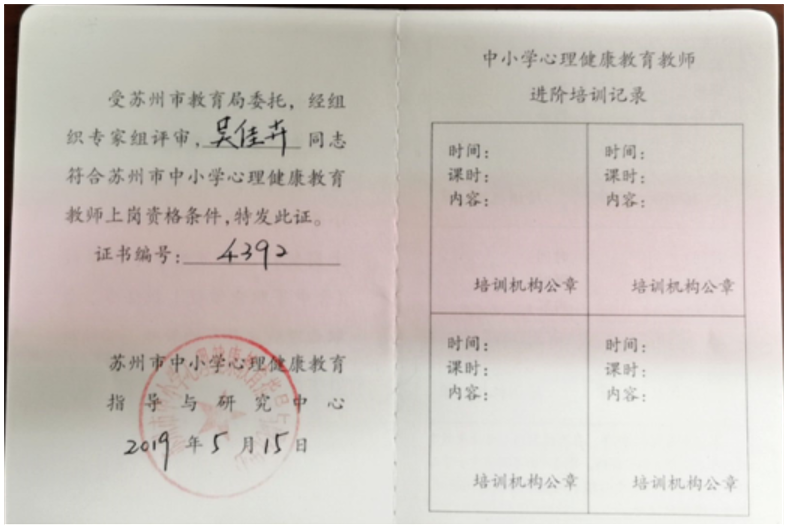 受苏州市教育局委托，经组
织专家组评审，吴佳卉 同志
符合苏州市中小学心理健康教育
教师上岗资格条件，特发此证。
证书编号：4392
苏州市中小学心理健康教育
指导与研究中心
2019年5月15日
中小学心理健康教育教师
进阶培训记录
时间：
课时：
内容：
培训机构公章
时间：
课时：
内容：
培训机构公章
时间：
课时：
内容：
培训机构公章
时间：
课时：
内容：
培训机构公章